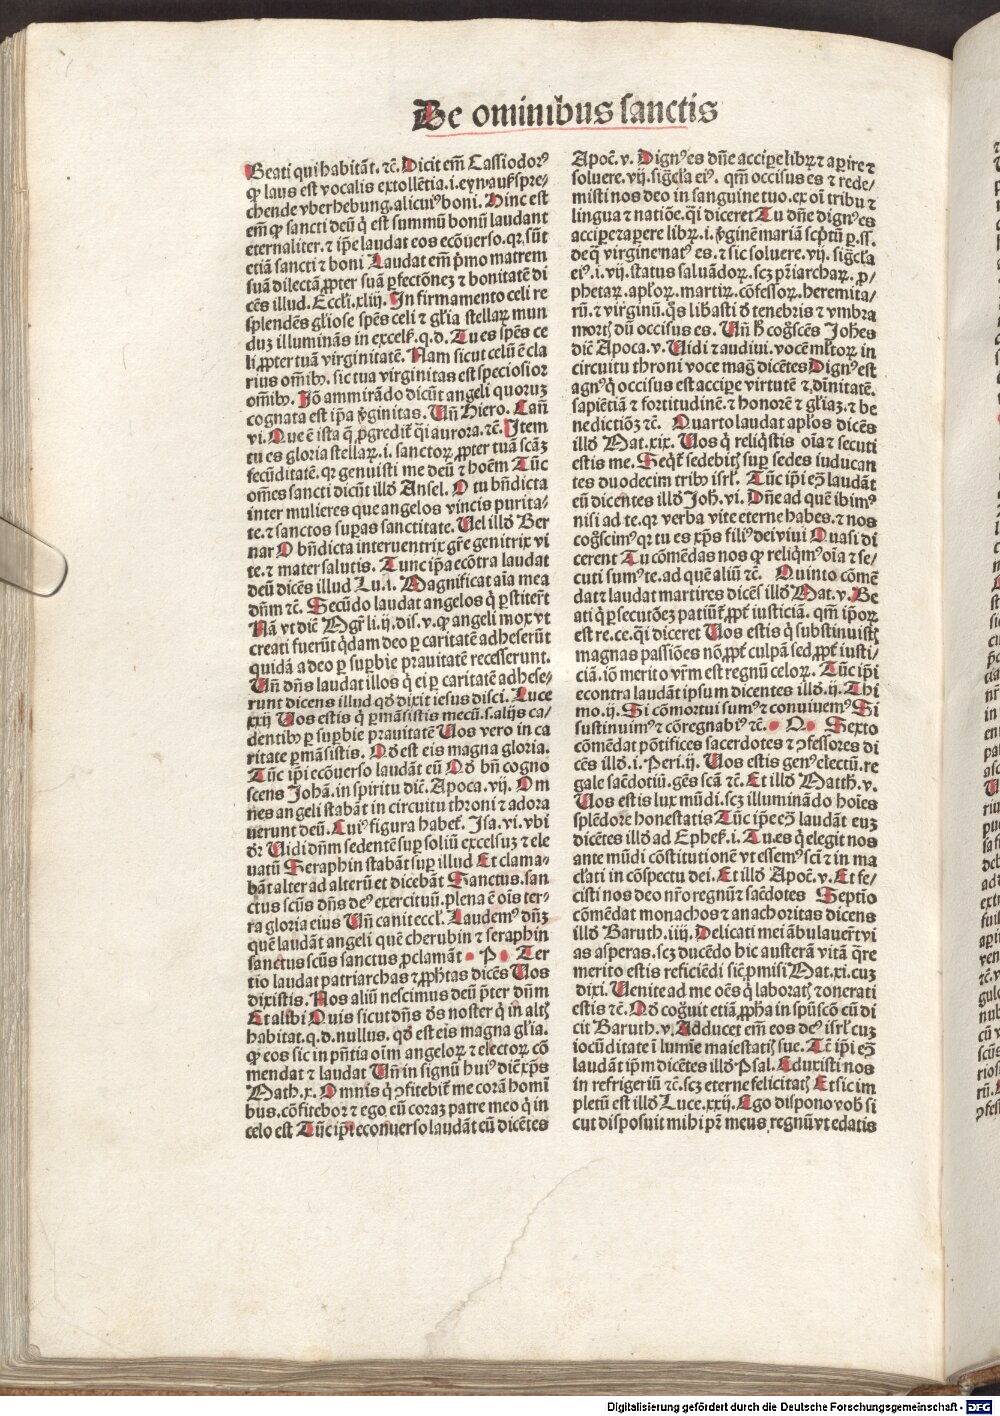 De ominibus sanctis
Beati qui habitāt. ⁊c̄. Dicit em̄ Cassiodorꝰ
ꝙ laus est vocalis extollētia .i. eynaufspre⸗
chende vberhebung. alicuiꝰ boni. Hinc est
em̄ ꝙ sancti deū q̇ est summū bonū laudant
eternaliter. ⁊ ip̄e laudat eos ecōuerso. qꝛ sūt
etiā sancti ⁊ boni Laudat em̄ p̄mo matrem
suā dilectā ꝓpter suā ꝑfectōnez ⁊ bonitatē di
cēs illud. Eccl̄i. xliij. In firmamento celi re
splendēs gl̄iose spēs celi ⁊ gl̄ia stellaꝝ mun
duz illuminās in excelẜ. q.d. Tu es spēs ce
li ꝓpter tuā virginitatē. Nam sicut celū ē cla
rius om̄ibꝰ. sic tua virginitas est speciosior
om̄ibꝰ. Iō ammirādo dicūt angeli quoruz
cognata est ip̄a v̄ginitas. Un̄ Hiero. Can̄
vi. Que ē ista q̄ ꝓgredit᷑ q̇i aurora. ⁊c̄. Item
tu es gloria stellaꝝ .i. sanctoꝝ ꝓpter tuā scāz
fecūditatē. qꝛ genuisti me deū ⁊ hoēm Tūc
om̄es sancti dicūt illđ Ansel. O tu bn̄dicta
inter mulieres que angelos vincis purita⸗
te. ⁊ sanctos suꝑas sanctitate. Uel illđ Ber
nar O bn̄dicta interuentrix gr̄e genitrix vi
te. ⁊ mater salutis. Tunc ip̄a ecōtra laudat
deū dicēs illud Lu. i. Magnificat aīa mea
dn̄m ⁊c̄. Secūdo laudat angelos q̇ ꝑstiter̄t
Nā vt dic̄ Mgr̄ li. ij. dis. v. ꝙ angeli mox vt
creati fuerūt q̇dam deo ꝑ caritatē adheserūt
quidā a deo ꝑ suꝑbie prauitatē recesserunt.
Un̄ dn̄s laudat illos q̇ ei ꝑ caritatē adhese⸗
runt dicens illud qđ dixit iesus disci. Luce
xxij Uos estis q̇ ꝑmāsistis mecū .s. alijs ca⸗
dentibꝰ ꝑ suꝑbie prauitatē Uos vero in ca
ritate ꝑmāsistis. Qđ est eis magna gloria.
Tūc ip̄i ecōuerso laudāt eū Qđ bn̄ cogno
scens Johā. in spiritu dic̄. Apoca. vij. Om
nes angeli stabāt in circuitu throni ⁊ adora
uerunt deū. Cuiꝰ figura habet᷑. Isa. vi. vbi
dꝛ Uidi dn̄m sedentē suꝑ soliū excelsuz ⁊ ele
uatū Seraphin stabāt suꝑ illud Et clama⸗
bāt alter ad alterū et dicebāt Sanctus. san
ctus scūs dn̄s deꝰ exercituū. plena ē oīs ter⸗
ra gloria eius Un̄ canit eccl̄. Laudemꝰ dn̄z
quē laudāt angeli quē cherubin ⁊ seraphin
sanctus scūs sanctus ꝓclamāt P Ter
tio laudat patriarchas ⁊ ꝓph̄tas dicēs Uos
dixistis. Nos aliū nescimus deū p̄ter dn̄m
Et alibi Quis sicut dn̄s đs noster q̇ in altꝭ
habitat. q.d. nullus. qđ est eis magna gl̄ia.
ꝙ eos sic in pn̄tia oīm angeloꝝ ⁊ electoꝝ cō
mendat ⁊ laudat Un̄ in signū huiꝰ dic̄ xp̄s
Math. x. Omnis q̇ ꝯfitebit᷑ me corā homi
bus. cōfitebor ⁊ ego eū coraz patre meo q̇ in
celo est Tūc ip̄i econuerso laudāt eū dicētes
Apoc̄. v. Dignꝰ es dn̄e accipe libꝝ ⁊ aꝑire ⁊
soluere. vij. sigc̄la eiꝰ. qm̄ occisus es ⁊ rede⸗
misti nos deo in sanguine tuo. ex oī tribu ⁊
lingua ⁊ natiōe. q̇i diceret Tu dn̄e dignꝰ es
accipe ⁊ aꝑere libꝝ .i. v̄ginē mariā scp̄tū ꝑ .ss.
de q̇ virgine natꝰ es. ⁊ sic soluere. vij. sigc̄la
eiꝰ .i. vij. status saluādoꝝ. scꝫ pr̄iarchaꝝ. ꝓ⸗
phetaꝝ. apl̄oꝝ. martiꝝ. cōfessoꝝ. heremita⸗
rū. ⁊ virginū. q̇s lib̄asti đ tenebris ⁊ vmbra
mortꝭ dū occisus es. Un̄ h̄ cog̊scēs Johēs
dic̄ Apoca. v. Uidi ⁊ audiui. vocē ml̄toꝝ in
circuitu throni voce mag̊ dicētes Dignꝰ est
agnꝰ q̇ occisus est accipe virtutē ⁊ diuinitatē.
sapiētiā ⁊ fortitudinē. ⁊ honorē ⁊ gl̄iaz. ⁊ be
nedictiōz ⁊c̄. Quarto laudat apl̄os dicēs
illđ Mat. xix. Uos q̇ reliq̇stis oīa ⁊ secuti
estis me. Seqt᷑ sedebitꝭ suꝑ sedes iudican
tes duodecim tribꝰ isrl̄. Tūc ip̄i eꝫ laudāt
eū dicentes illđ Joh̄. vi. Dn̄e ad quē ibimꝰ
nisi ad te. qꝛ verba vite eterne habes. ⁊ nos
cog̊scimꝰ qꝛ tu es xp̄s filiꝰ dei viui Quasi di
cerent Tu cōmēdas nos ꝙ reliqmꝰ oīa ⁊ se⸗
cuti sumꝰ te. ad quē aliū ⁊c̄. Quinto cōmē
dat ⁊ laudat martires dicēs illđ Mat. v. Be
ati q̇ ꝑsecutōez patiūt᷑ ꝓpt᷑ iusticiā. qm̄ ip̄oꝝ
est re. ce. q̇i diceret Uos estis q̇ substinuistꝭ
magnas passiōes nō ꝓpt᷑ culpā sed ꝓpt᷑ iusti⸗
ciā. iō merito vr̄m est regnū celoꝝ. Tūc ip̄i
econtra laudāt ipsum dicentes illđ .ij. Thi
mo. ij. Si cōmortui sumꝰ ⁊ conuiuemꝰ Si
sustinuimꝰ ⁊ cōregnabiꝰ ⁊c̄. Q Sexto
cōmēdat pōtifices sacerdotes ⁊ ꝯfessores di
cēs illđ .i. Petri. ij. Uos estis genꝰ electū. re
gale sac̄dotiū. gēs scā ⁊c̄. Et illđ Matth. v.
Uos estis lux mūdi. scꝫ illuminādo hoīes
splēdore honestatis Tūc ip̄e eꝫ laudāt euz
dicētes illđ ad Ephes̄. i. Tu. es q̇ elegit nos
ante mūdi cōstitutionē vt essemꝰ sc̄i ⁊ in ma
cl̄ati in cōspectu dei. Et illđ Apoc̄. v. Et fe⸗
cisti nos deo nr̄o regnū ⁊ sac̄dotes Septīo
cōmēdat monachos ⁊ anachoritas dicens
illđ Baruth. iiij. Delicati mei ābulauer̄t vi
as asperas. scꝫ ducēdo hic austerā vitā q̄re
merito estis reficiēdi sic̄ ꝓmisi Mat. xi. cuz
dixi. Uenite ad me oēs q̇ laboratꝭ ⁊ onerati
estis ⁊c̄. Qđ cog̊uit etiā ꝓph̄a in spūscō cū di
cit Baruth. v. Adducet em̄ eos deꝰ isrl̄ cuz
iocūditate ī lumīe maiestatꝭ sue. Tc̄ ip̄i eꝫ
laudāt ip̄m dicētes illđ Psal. Eduxisti nos
in refrigeriū ⁊c̄. scꝫ eterne felicitatꝭ Et sic im
pletū est illđ Luce. xxij. Ego dispono vob̄ si
cut disposuit mihi pr̄ meus regnū vt edatis
Digitalisierung gefördert durch die Deutsche Forschungsgemeinschaft - DFG